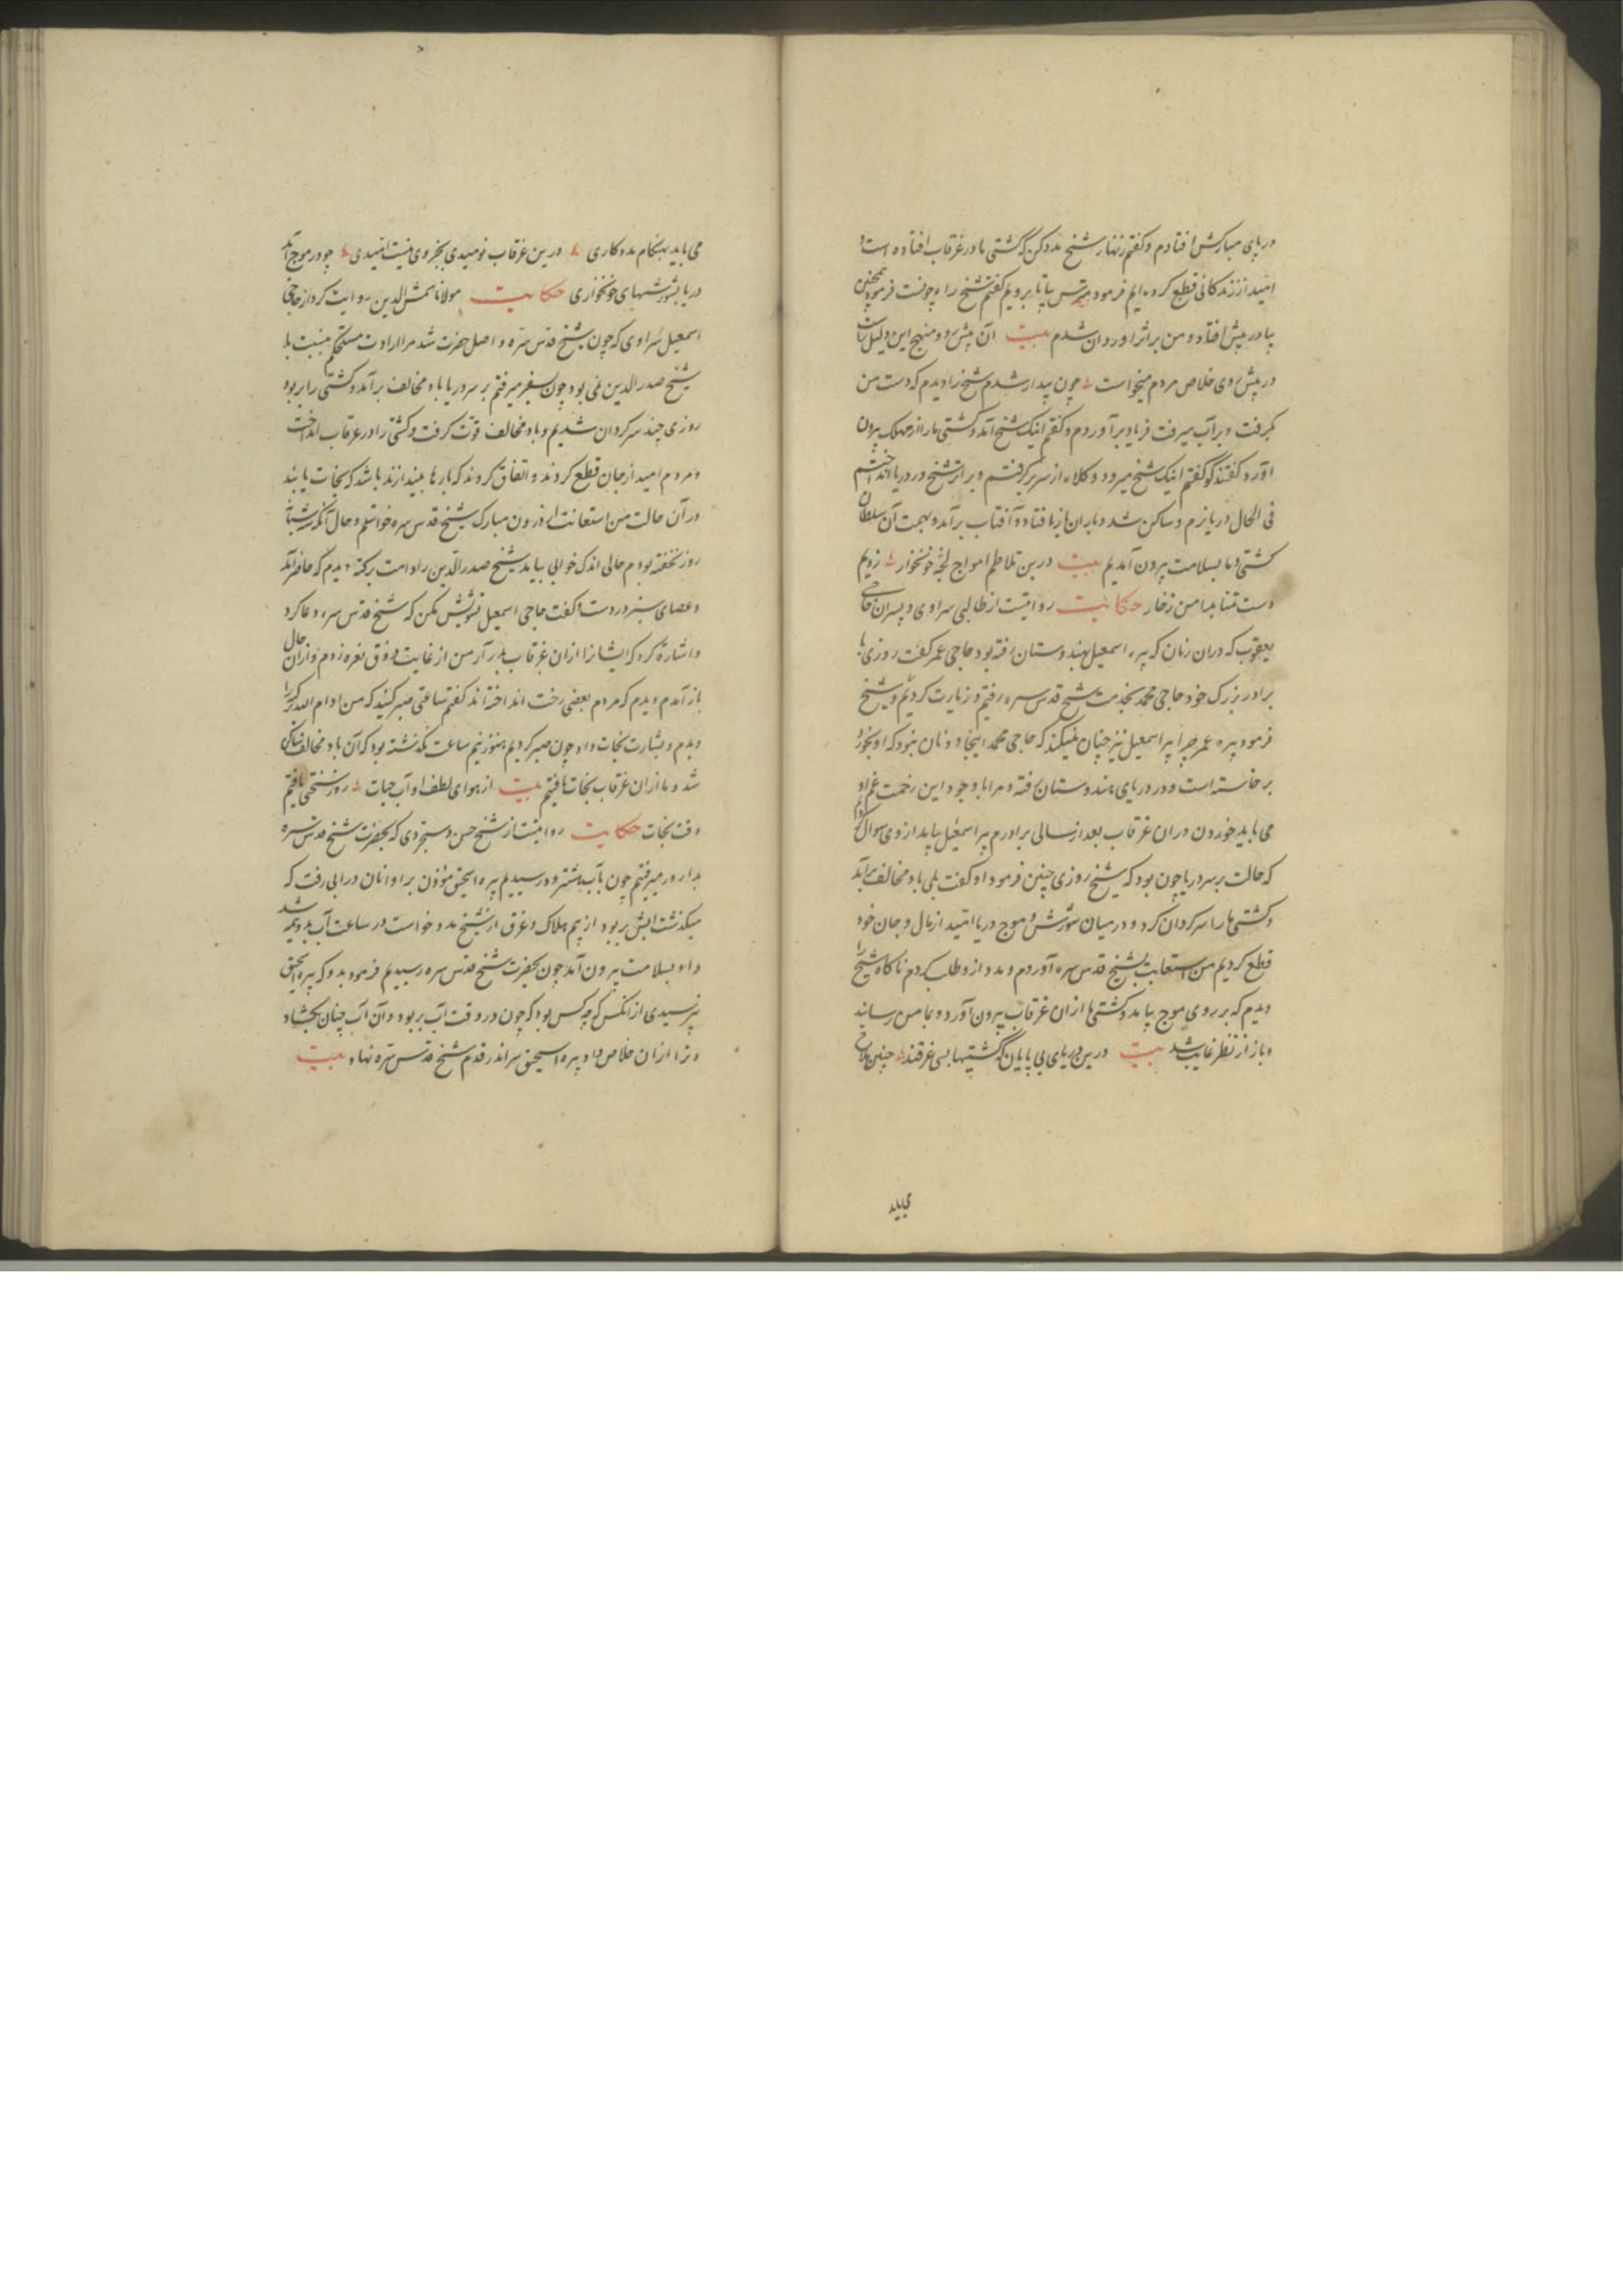 در پای مبارکش افتادم و گفتم زنهار شیخ مدد کن که کشتی ما در غرقاب افتاده است و
امید از زندکانی قطع کرده ایم فرمود مترس بیا تا برویم گفتم شیخ راه چونست فرمود همچنین
پیاده پیش افتاد و من بر اثر او روان شدم بیت آن پیش رو و منهج این دلیل راست
در پیش روی خلاص مردم میخواست چون بیدار شدم شیخ را دیدم که دست من
بگرفت و بر آب میرفت فریاد برآوردم و گفتم اینک شیخ آمد و کشتی ما را از مهلک بیرون
آورد گفتند کو گفتم اینک شیخ میرود و کلاه از سر برگرفتم و بر اثر شیخ در دریا انداختم
فی الحال دریا نرم و ساکن شد و باران باز افتاد و آفتاب برآمد و بهمت آن سلطان
کشتی و ما بسلامت بیرون آمدیم بیت درین تلاطم امواج لجهٔ خونخوار زدیم
دست تمنا بدامن زخار حکایت روایتست از طالبی سراوی و پسران حاجی
یعقوب که دران زمان که پیره اسمعیل بهندوستان رفته بود حاجی عمر گفت روزی با
برادر بزرک خود حاجی محمد بخدمت شیخ قدس سره رفتیم و زیارت کردیم و شیخ
فرمود پیره عمر چرا پیر اسمعیل نیز چنان نمیکند که حاجی محمد اینجا دو نان بنود که او بخورد
برخاسته است و در دریای هندوستان رفته و مرا با وجود این زحمت غم او
می باید خوردن دران غرقاب بعد از سالی برادرم پیر اسمعیل بیامد از وی سوال کردم
که حالت بر سر دریا چون بود که شیخ روزی چنین فرمود او گفت بلی باد مخالف برآمد
و کشتی ما را سرکردان کرد و در میان شورش و موج دریا امید از مال و جان خود
قطع کردیم من استعانت بشیخ قدس سره آوردم و مدد ازو طلب کردم ناکاه شیخ را
دیدم که بر روی موج بیامد و کشتی ما ازان غرقاب بیرون آورد و بمامن رسانید
و باز از نظر غایب شد بیت درین دریای بی پایان که کشتیها بسی غرقند چنین ملاح
می باید
می باید بهنکام مدد کاری درین غرقاب نومیدی بجز وی نیست امیدی چو در موج آمد
دریا بشورشهای خونخواری حکایت مولانا شمس الدین روایت کرد از حاجی
اسمعیل سراوی که چون شیخ قدس سره واصل حضرت شد مرا ارادت مستحکم بنسبت با
شیخ صدر الدین نمی بود چون بسفر میرفتم بر سر دریا باد مخالف برآمد و کشتی را بر بود
روزی چند سرکردان شدیم و باد مخالف قوت گرفت و کشتی را در غرقاب انداخت
و مردم امید از جان قطع کردند و اتفاق کردند که بارها بیندازند باشد که نجات یابند
در آن حالت من استعانت از درون مبارک شیخ قدس سره خواستم و حال آنکه سه شبان
روز نخفته بودم حالی اندک خوابی بیامد شیخ صدر الدین را دامت برکته دیدم که حاضر آمد
و عصای سبز در دست و گفت حاجی اسمعیل تشویش مکن که شیخ قدس سره دعا کرد
و اشارة کرد که ایشانرا ازان غرقاب بدر آر من از غایت ذوق نعره زدم و ازان حال
باز آمدم دیدم که مردم بعضی رخت انداخته اند گفتم ساعتی صبر کنید که من ادام الله برکته را
دیدم و بشارت نجات داد چون صبر کردیم هنوز نیم ساعت نگذشته بود که آن باد مخالف ساکن
شد و ما ازان غرقاب نجات یافتیم بیت از هوای لطف او آب حیات روز سختی یافتیم
وقت نجات حکایت روایتست از شیخ حسن دستجردی که بحضرت شیخ قدس سره
میرفتیم چون بآب رسیدیم پیره اسحق مؤذن در آبی رفت که
میکذشت آبش بر بود از بیم هلاک و غرق از شیخ مدد خواست در ساعت آب بدو نیمه شد
و او بسلامت بیرون آمد چون بحضرت شیخ قدس سره رسیدیم فرمود بدو که پیره اسحق
نپرسیدی از آنکس که چه کس بود که چون در وقت آب بر بود و آن آب چنان بگشاد
و ترا ازان خلاص داد پیره اسحق سر اندر قدم شیخ قدس سره نهاد بیت